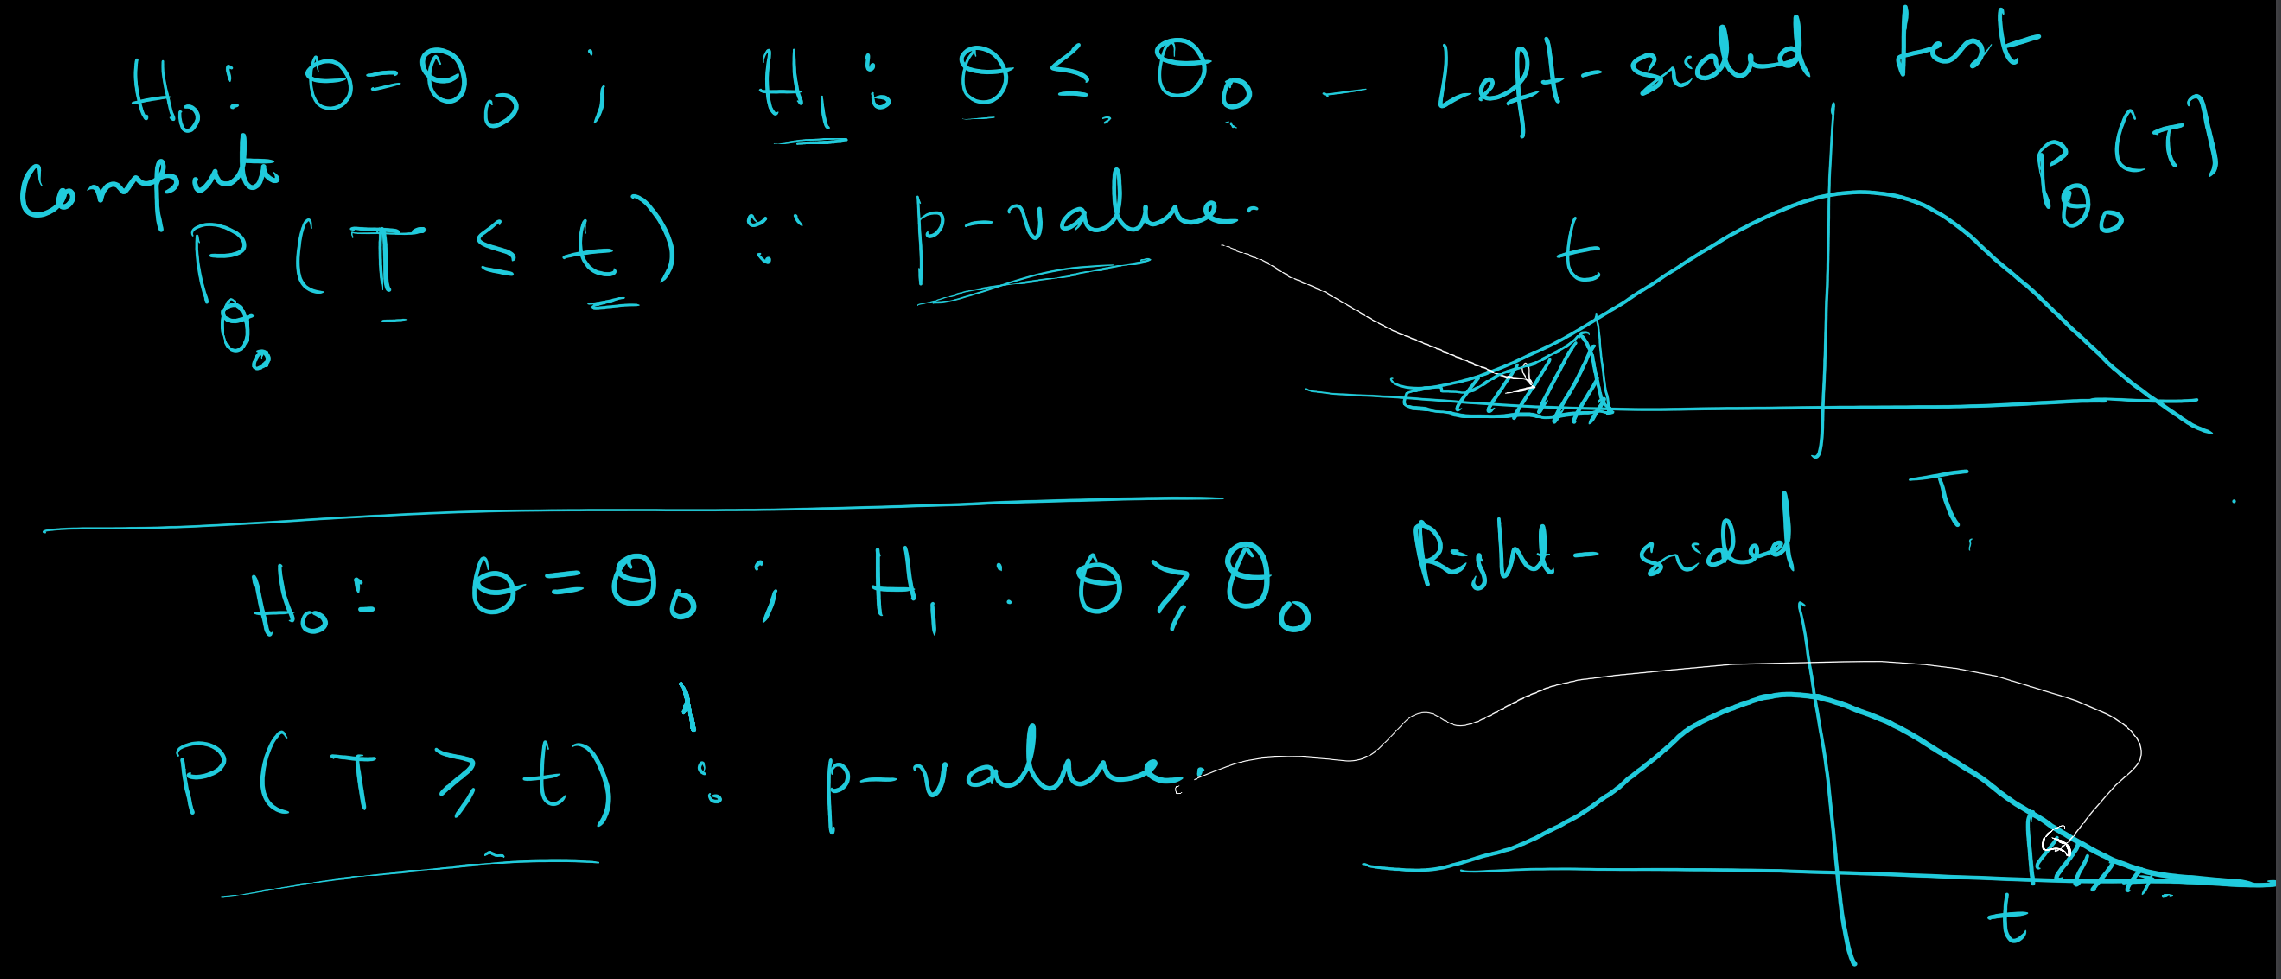 H₀: θ = θ₀ ; H₁: θ ≤ θ₀ – Left-sided test
Compute
P_θ₀ (T ≤ t) : p-value.
t
P_θ₀ (T)
T
H₀: θ = θ₀ ; H₁ : θ ≥ θ₀
Right-sided
P(T ≥ t) : p-value.
t